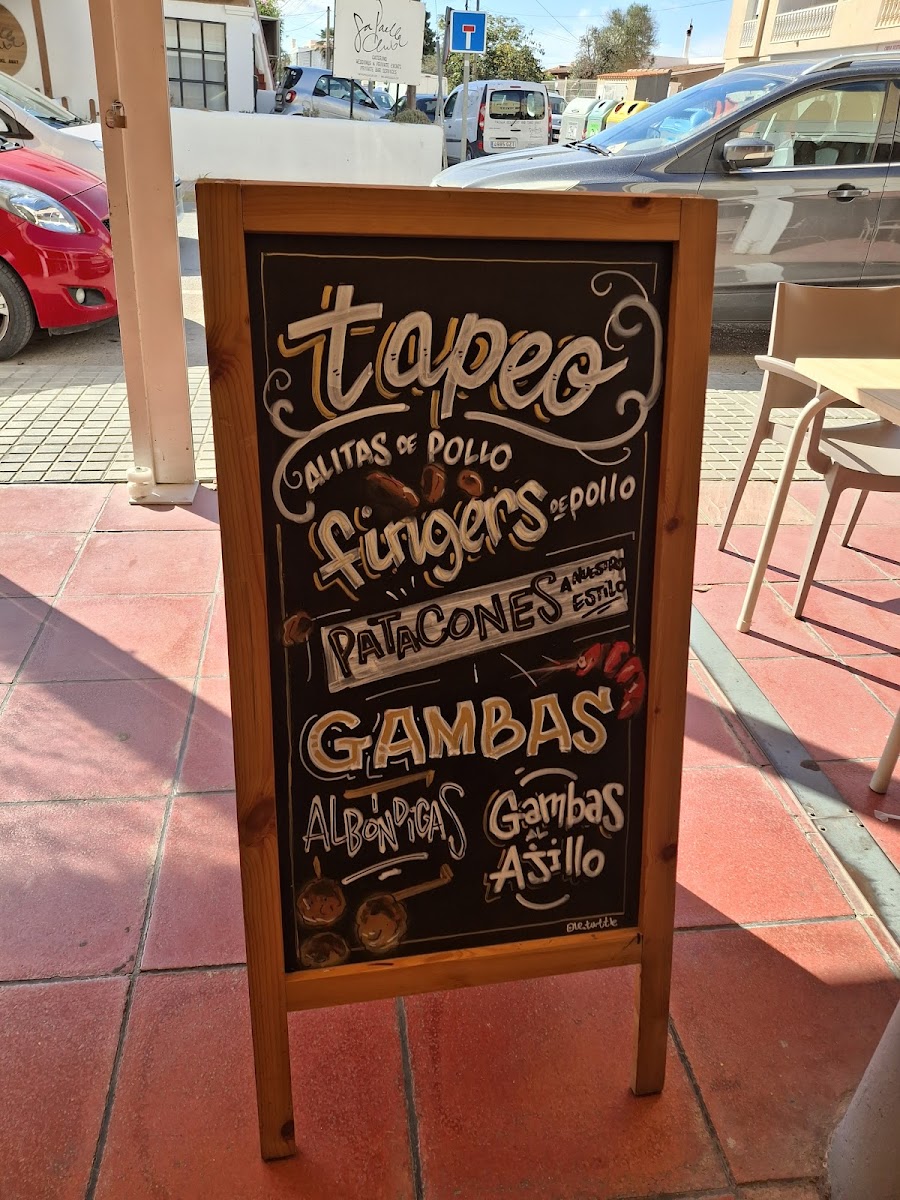 tapeo
ALITAS DE POLLO
fingers DE POLLO
PATACONES A NUESTRO ESTILO
GAMBAS
ALBÓNDIGAS
Gambas
AL
Ajillo